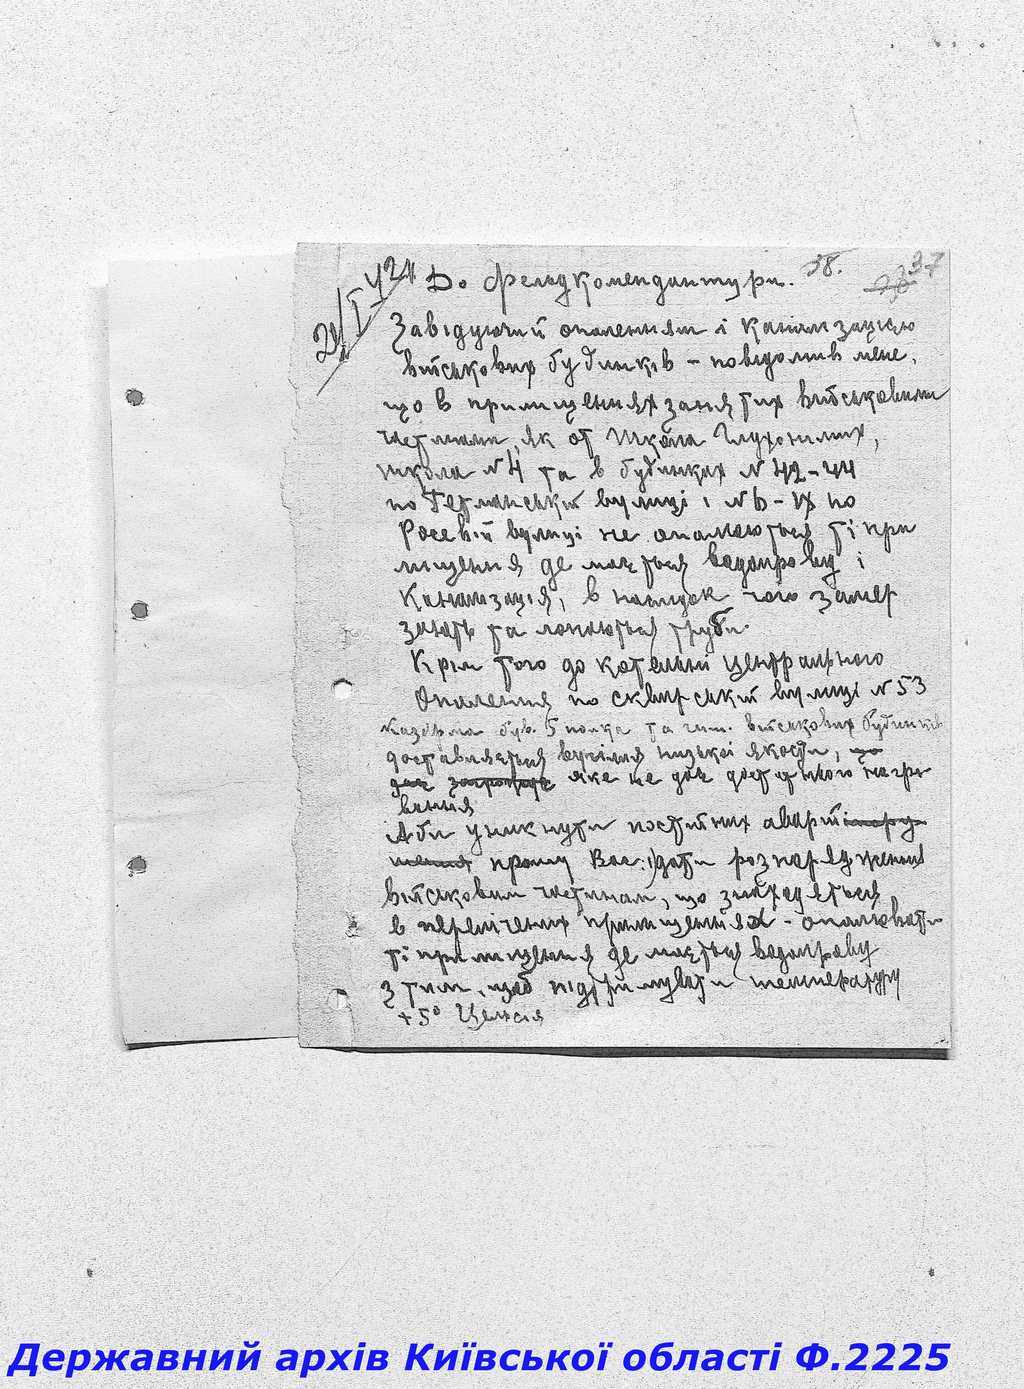 38.
37
До Фельдкомендантури.
Завідуючий опаленням і каналізацією
військових будинків – повідомив мене,
що в приміщеннях занятих військовими
частинами, як от школа Глухонімих,
школа №4 та в будинках №42-44
по Гетманській вулиці і № по
Росевій вулиці не опалюються ті при
міщення де мається водопровід і
Каналізація, в наслідок чого замер
зають та лопаються труби.
Крім того до котельні центрального
Опалення по сквирській вулиці №53
Казарма був. 5 полка та інш. військових будинків
доставляється вугілля низької якости, що
дає яке не дає достатнього нагрі
вання
Аби уникнути постійних аварій
прошу Вас: 1) дати розпорядження
військовим частинам, що знаходяться
в перелічених приміщеннях – опалювати
ті приміщення де мається водопровід
з тим, щоб підтримувати температуру
+5° Цельсія
Державний архів Київської області Ф.2225